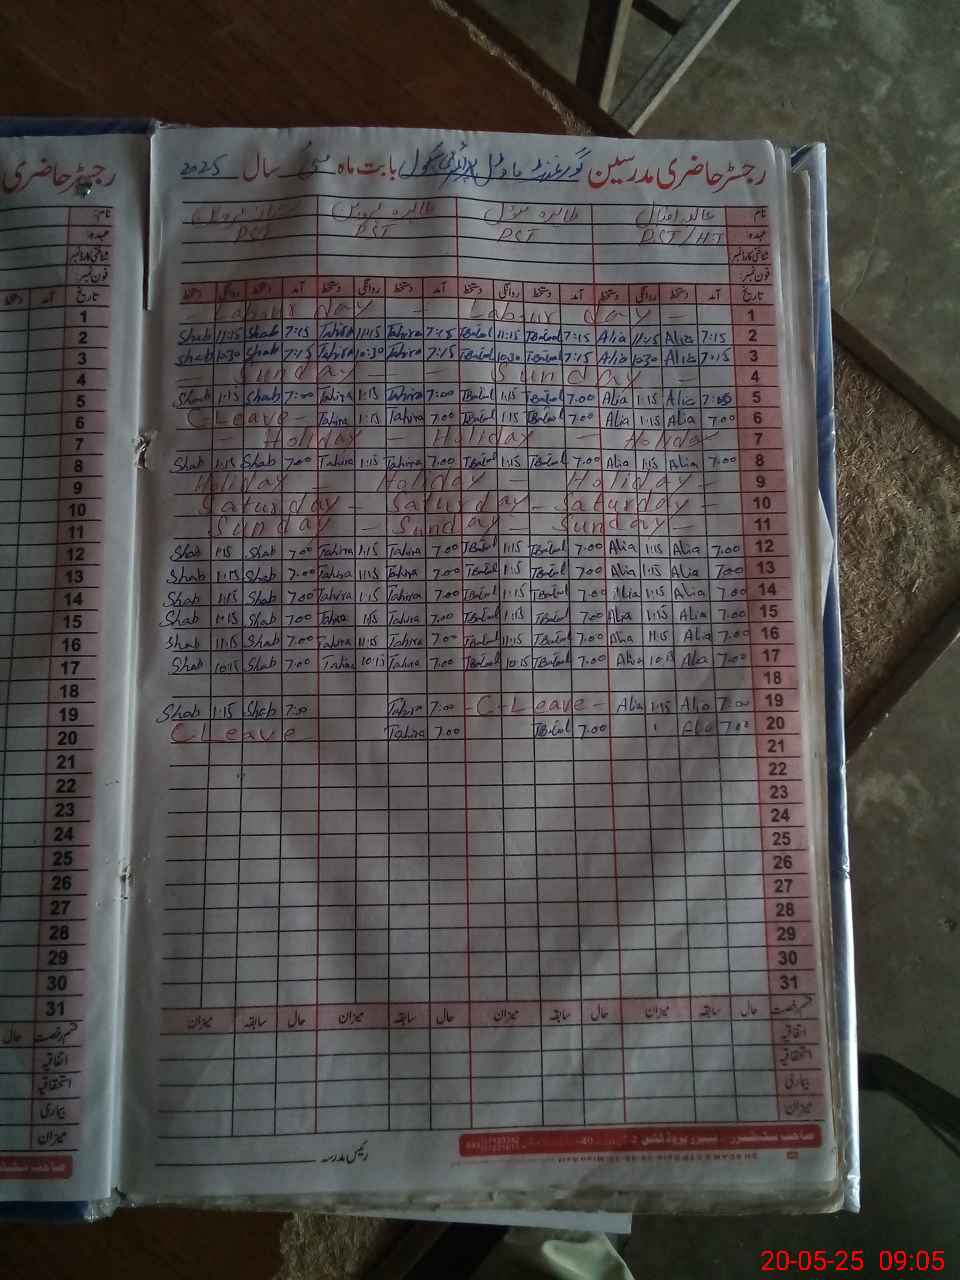 رجسٹر حاضری مدرسین گورنمنٹ ماڈل پرائمری سکول بابت ماہ مئی سال 2025
نام:
عہدہ: PST/HT PST PST PST
شناختی کارڈ نمبر
فون نمبر:
تاریخ آمد دستخط روانگی دستخط آمد دستخط روانگی دستخط آمد دستخط روانگی دستخط آمد دستخط روانگی دستخط
- Labour day - Labour day - 1
Shab 11:15 Shab 7:15 Tahira 11:15 Tahira 7:15 TBatool 11:15 TBatool 7:15 Alia 11:15 Alia 7:15 2
Shab 10:30 Shab 7:15 Tahira 10:30 Tahira 7:15 TBatool 10:30 TBatool 7:15 Alia 10:30 Alia 7:15 3
- Sunday - - Sunday - 4
Shab 1:15 Shab 7:00 Tahira 1:15 Tahira 7:00 TBatool 1:15 TBatool 7.00 Alia 1:15 Alia 7:00 5
C Leave - Tahira 1:15 Tahira 7.00 TBatool 1:15 TBatool 7.00 Alia 1:15 Alia 7.00 6
- Holiday - Holiday - Holiday 7
Shab 1:15 Shab 7.00 Tahira 1:15 Tahira 7.00 TBatool 1:15 TBatool 7.00 Alia 1:15 Alia 7.00 8
Holiday - Holiday - Holiday - 9
Saturday - Saturday - Saturday - 10
Sunday - Sunday - Sunday - 11
Shab 1:15 Shab 7.00 Tahira 1:15 Tahira 7.00 TBatool 1:15 TBatool 7.00 Alia 1:15 Alia 7.00 12
Shab 1:15 Shab 7.00 Tahira 1:15 Tahira 7.00 TBatool 1:15 TBatool 7.00 Alia 1:15 Alia 7.00 13
Shab 1:15 Shab 7.00 Tahira 1:15 Tahira 7.00 TBatool 1:15 TBatool 7.00 Alia 1:15 Alia 7.00 14
Shab 1:15 Shab 7.00 Tahira 1:15 Tahira 7.00 TBatool 1:15 TBatool 7.00 Alia 1:15 Alia 7.00 15
Shab 11:15 Shab 7.00 Tahira 11:15 Tahira 7.00 TBatool 11:15 TBatool 7.00 Alia 11:15 Alia 7.00 16
Shab 10:15 Shab 7.00 Tahira 10:15 Tahira 7.00 TBatool 10:15 TBatool 7.00 Alia 10:15 Alia 7.00 17
18
Shab 1:15 Shab 7:00 Tahira 7.00 - C-Leave - Alia 1:15 Alia 7:00 19
C Leave - Tahira 7.00 TBatool 7.00 Alia 7.00 20
21
22
23
24
25
26
27
28
29
30
31
قسم رخصت حال سابقہ میزان حال سابقہ میزان حال سابقہ میزان حال سابقہ میزان
اتفاقیہ
استحقاقیہ
بیماری
میزان
رئیس مدرسہ
رجسٹر حاضری
نام:
عہدہ:
شناختی کارڈ نمبر
فون نمبر:
تاریخ آمد
1
2
3
4
5
6
7
8
9
10
11
12
13
14
15
16
17
18
19
20
21
22
23
24
25
26
27
28
29
30
31
قسم رخصت حال
اتفاقیہ
استحقاقیہ
بیماری
میزان
20-05-25 09:05